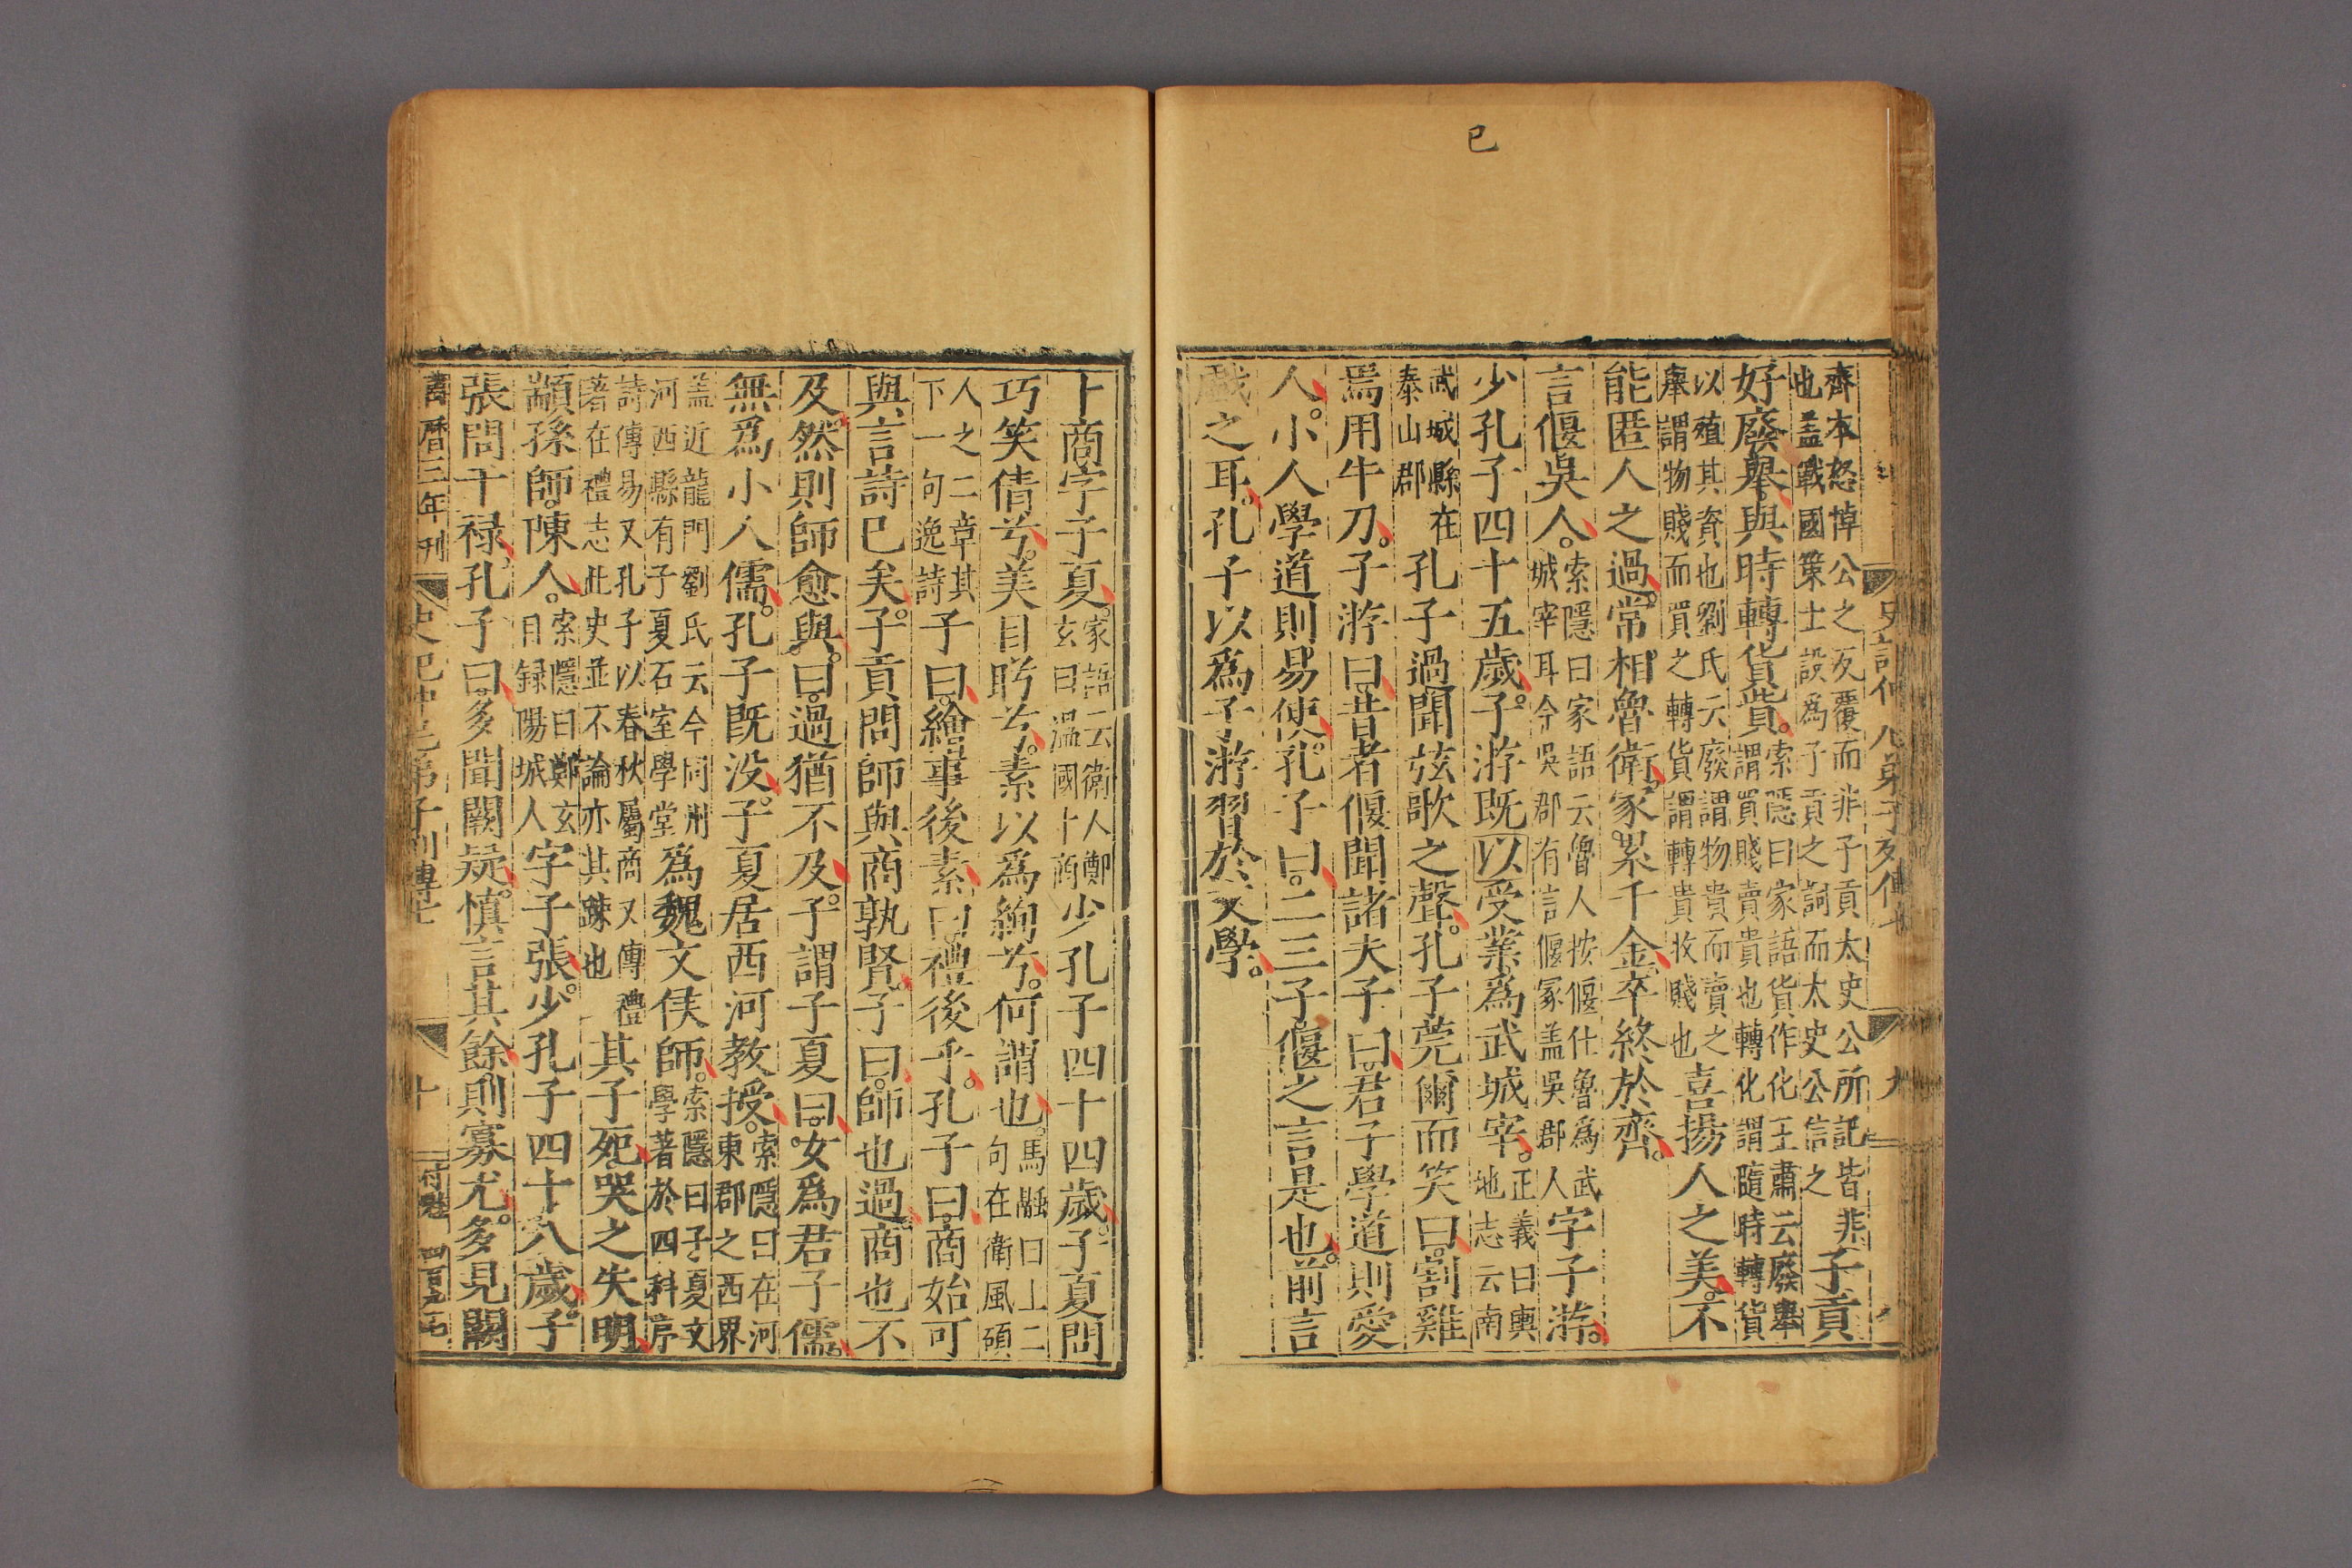 已
史記列傳 八弟子列傳七 九
齊本怒悼公之反覆而非子貢太史公所記皆非
也盖戰國策士設為子貢之詞而太史公信之
子貢
好廢舉與時轉貨貲
索隱曰家語貨作化王肅云廢舉
謂買賤賣貴也轉化謂隨時轉貨
以殖其資也劉氏云廢謂物貴而賣之
舉謂物賤而買之轉貨謂轉貴收賤也
喜揚人之美不
能匿人之過常相魯衛家累千金卒終於齊
言偃吳人
索隱曰家語云魯人按偃仕魯為武
城宰耳今吳郡有言偃冢盖吳郡人
字子游
少孔子四十五歲子游既以受業為武城宰
正義曰輿
地志云南
武城縣在
泰山郡
孔子過聞弦歌之聲孔子莞爾而笑曰割雞
焉用牛刀子游曰昔者偃聞諸夫子曰君子學道則愛
人小人學道則易使孔子曰二三子偃之言是也前言
戲之耳孔子以為子游習於文學
卜商字子夏
家語云衛人鄭
玄曰温國卜商
少孔子四十四歲子夏問
巧笑倩兮美目盻兮素以為絢兮何謂也
馬融曰上二
句在衛風碩
人之二章其
下一句逸詩
子曰繪事後素曰禮後乎孔子曰商始可
與言詩已矣子貢問師與商孰賢子曰師也過商也不
及然則師愈與曰過猶不及子謂子夏曰女為君子儒
無為小人儒孔子既没子夏居西河教授
索隱曰在河
東郡之西界
盖近龍門劉氏云今同州
河西縣有子夏石室學堂
為魏文侯師
索隱曰子夏文
學著於四科序
詩傳易又孔子以春秋屬商又傳禮
著在禮志此史並不論亦其疎也
其子死哭之失明
顓孫師陳人
索隱曰鄭玄
目録陽城人
字子張少孔子四十八歲子
張問干禄孔子曰多聞闕疑慎言其餘則寡尤多見闕
萬曆三年刊 史記仲尼弟子列傳七 十